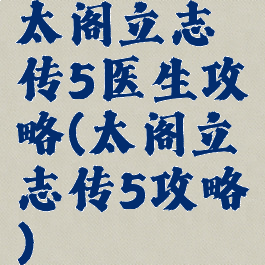 太阁立志
传5医生攻
略(太阁立
志传5攻略
)